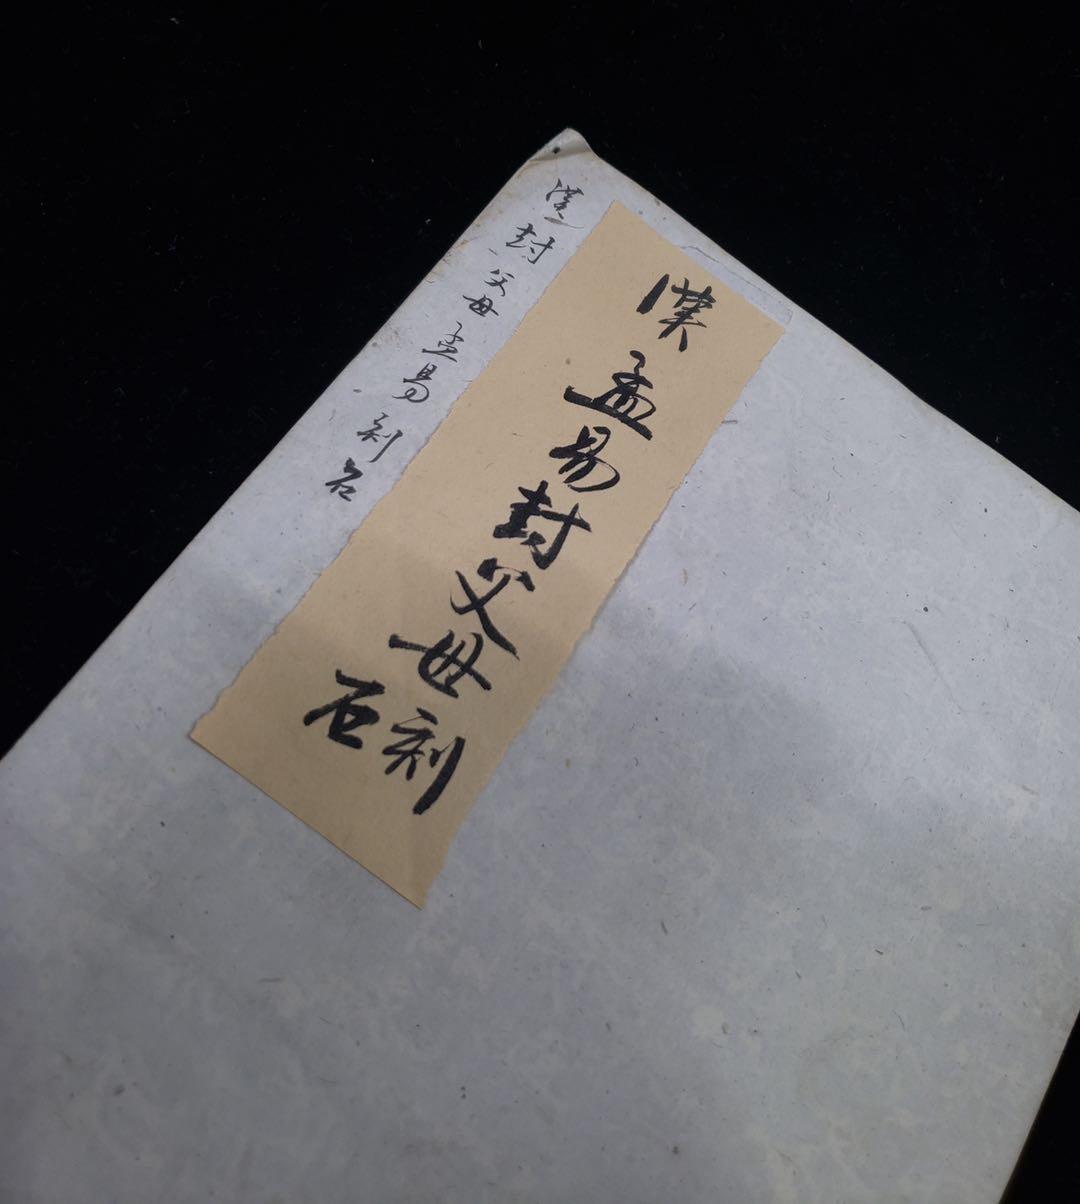 漢孟易封父母刻
石
漢封父母孟易刻石